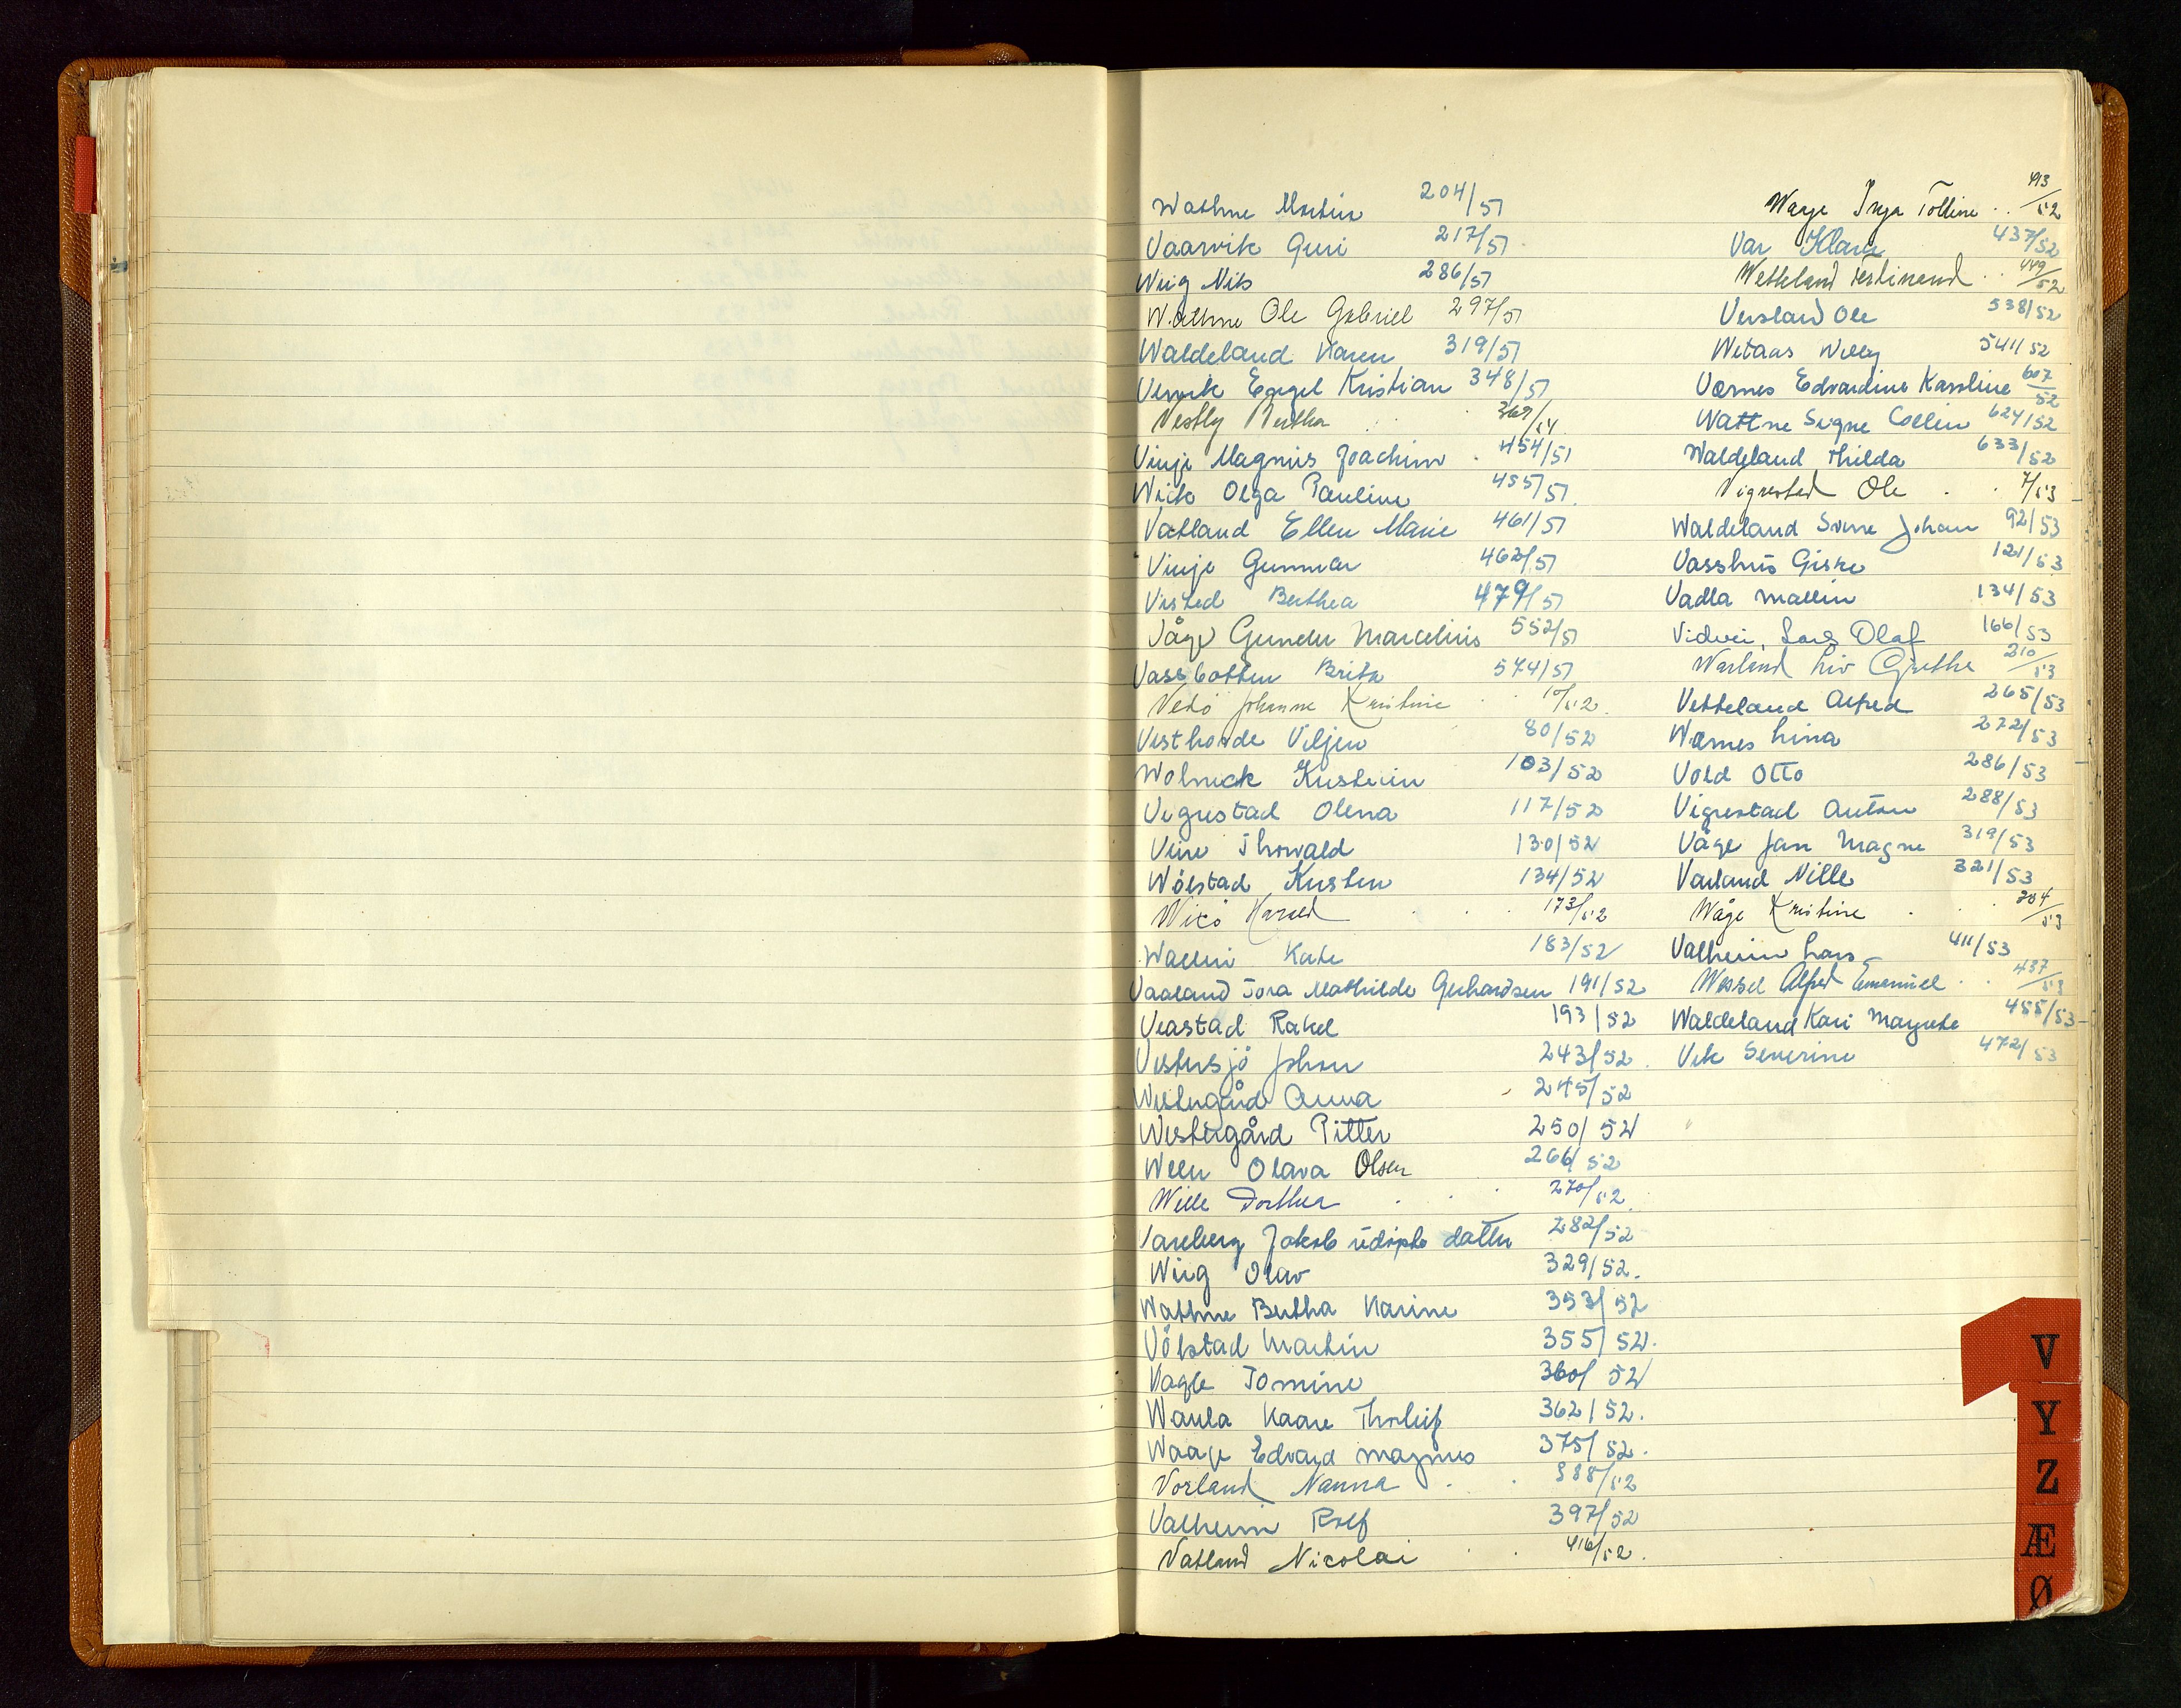 Wathne Martin 204/51
Vaarvik Guri 217/51
Wiig Nils 286/51
Wathne Ole Gabriel 297/51
Waldeland Karen 319/51
Vervik Engel Kristian 348/51
Vestly Bertha 369/51
Vinje Magnus Joachim 454/51
Wick Olga Pauline 455/51
Vatland Ellen Marie 461/51
Vinje Gunnar 462/51
Visted Berthea 479/51
Våge Gunder Marcelius 552/51
Vassbotten Brita 574/51
Vetø Johanne Kristine 10/52
Vesthovde Viljen 80/52
Wolneck Kristian 103/52
Vigrestad Olena 117/52
Thorvald 130/52
Wølstad Kirsten 134/52
Harald 173/52
Wallin Kate 183/52
Vaaland Tora Mathilde Gerhardsen 191/52
Veastad Rakel 193/52
Vestersjø Johan 243/52
Westergård Anna 245/52
Westergård Pitter 250/52
Olava Olsen 266/52
Wille Dorthea 270/52
Vareberg Jakob udøpte datter 282/52
Wiig Olav 329/52.
Wathne Bertha Karine 353/52
Vølstad Martin 355/52.
Vagle Tomine 360/52
Waula Kaare Thorleif 362/52.
Waage Edvard Magnus 375/52.
Vorland Nanna 388/52
Valheim Rolf 397/52
Vatland Nicolai 416/52.
Waage Inga Tolline 413/52
Var Klara 437/52
Wetteland Ferdinand 449/52
Versland Ole 538/52
Wetaas Willy 541/52
Værnes Edvardine Karoline 607/52
Wattne Signe Collin 624/52
Waldeland Thilda 633/52
Vigrestad Ole 7/53
Waldeland Sverre Johan 92/53
Vasshus Giske 121/53
Vadla Mallin 134/53
Vidvei, Lars Olaf 166/53
Warland Liv Grethe 210/53
Vetteland Alfred 265/53
Wærnes Lina 272/53
Vold Otto 286/53
Vigrestad Anton 288/53
Våge Jan Magne 319/53
Varland Nille 321/53
Våge Kristine 384/53
Valheim Lars 411/53
Wessel Alfred Emanuel 437/53
Waldeland Kari Margrete 455/53
Vik Severine 472/53
V
Y
Z
Æ
Ø